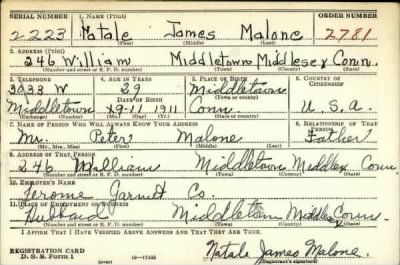 SERIAL NUMBER 1. NAME (Print) ORDER NUMBER
2223 Natale James Malone 2781
(First) (Middle) (Last)
2. ADDRESS (Print)
246 William Middletown Middlesex Conn.
(Number and street or R. F. D. number) (Town) (County) (State)
3. TELEPHONE 4. AGE IN YEARS 5. PLACE OF BIRTH 6. COUNTRY OF CITIZENSHIP
3033 W 29 Middletown
DATE OF BIRTH (Town or county)
Middletown 9-11 1911 Conn. U.S.A.
(Exchange) (Number) (Mo.) (Day) (Yr.) (State or country)
7. NAME OF PERSON WHO WILL ALWAYS KNOW YOUR ADDRESS 8. RELATIONSHIP OF THAT PERSON
Mr. Peter Malone Father
(Mr., Mrs., Miss) (First) (Middle) (Last)
9. ADDRESS OF THAT PERSON
246 William Middletown Middlex Conn.
(Number and street or R. F. D. number) (Town) (County) (State)
10. EMPLOYER'S NAME
Jerome Co.
11. PLACE OF EMPLOYMENT OR BUSINESS
Hubbard Middletown Middlex Conn.
(Number and street or R. F. D. number) (Town) (County) (State)
I AFFIRM THAT I HAVE VERIFIED ABOVE ANSWERS AND THAT THEY ARE TRUE.
REGISTRATION CARD
D. S. S. Form 1 (over) Natale James Malone.
(Registrant's signature)